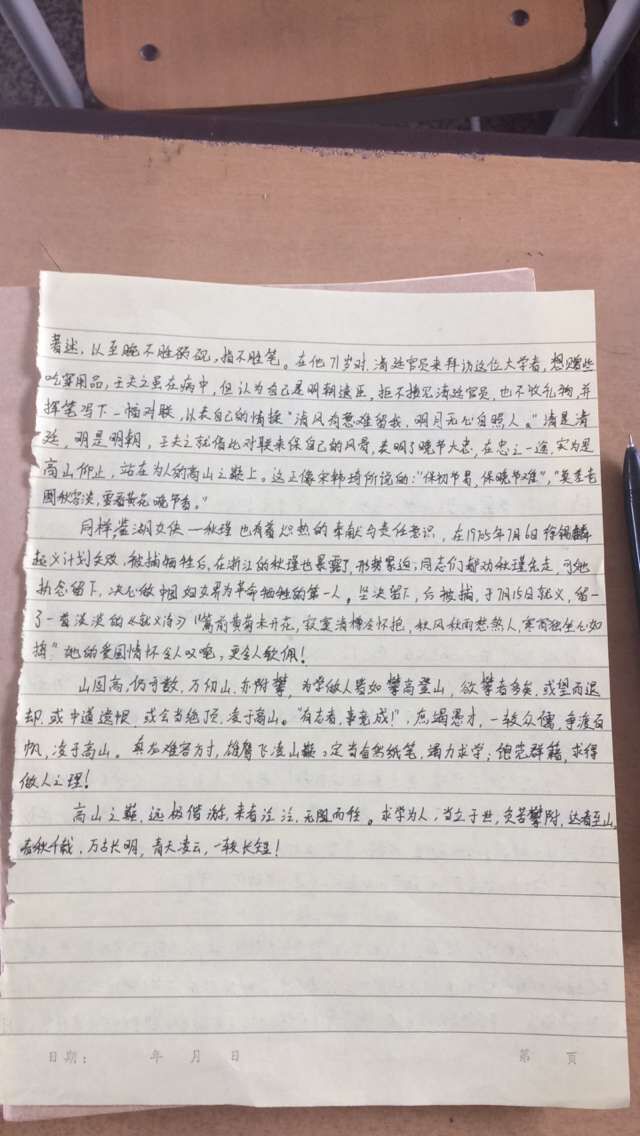 著述，以至腕不胜砚，指不胜笔。在他71岁时，清廷官员来拜访这位大学者，想赠些
吃穿用品，王夫之虽在病中，但认为自己是明朝遗臣，拒不接见清廷官员，也不收礼物，并
挥笔写下一幅对联，以表自己的情操"清风有意难留我，明月无心自照人。"清是清
廷，明是明朝，王夫之就借此对联来保自己的风骨，表明了晚节大忠，在忠之一途，实为是
高山仰止，站在为人的高山之巅上。这正像宋韩琦所说的："保初节易，保晚节难"，"莫羞老
圃秋容淡，要看黄花晚节香。"
同样鉴湖女侠—秋瑾也有着炽热的奉献与责任意识，在1905年7月6日徐锡麟
起义计划失败，被捕牺牲后，在浙江的秋瑾也暴露了，形势紧迫；同志们都劝秋瑾先走，可她
执念留下，决心做中国妇女界为革命牺牲的第一人。坚决留下，后被捕，于7月15日就义，留
了一首淡淡的《就义诗》"篱前黄菊未开花，寂寞清樽冷怀抱，秋风秋雨愁煞人，寒宵独坐心如
捣"她的爱国情怀令人叹惋，更令人钦佩！
山固高，仍可数，万仞山，亦附攀，为学做人皆如攀高登山，欲攀者多矣，或望而退
却，或中道遗恨，或会当绝顶，凌于高山。"有志者，事竟成！"，庶竭愚才，一较众儒，争渡百
帆，凌于高山。真龙难容方寸，雄鹰飞凌山巅；定当奋然纸笔，竭力求学；饱览群籍，求得
做人之理！
高山之巅，远极偕游，来者泛泛，无阻而往。求学为人，当立于世，负苦攀附，达者至山，
春秋千载，万古长明，青天凌云，一较长短！
日期： 年 月 日 第 页